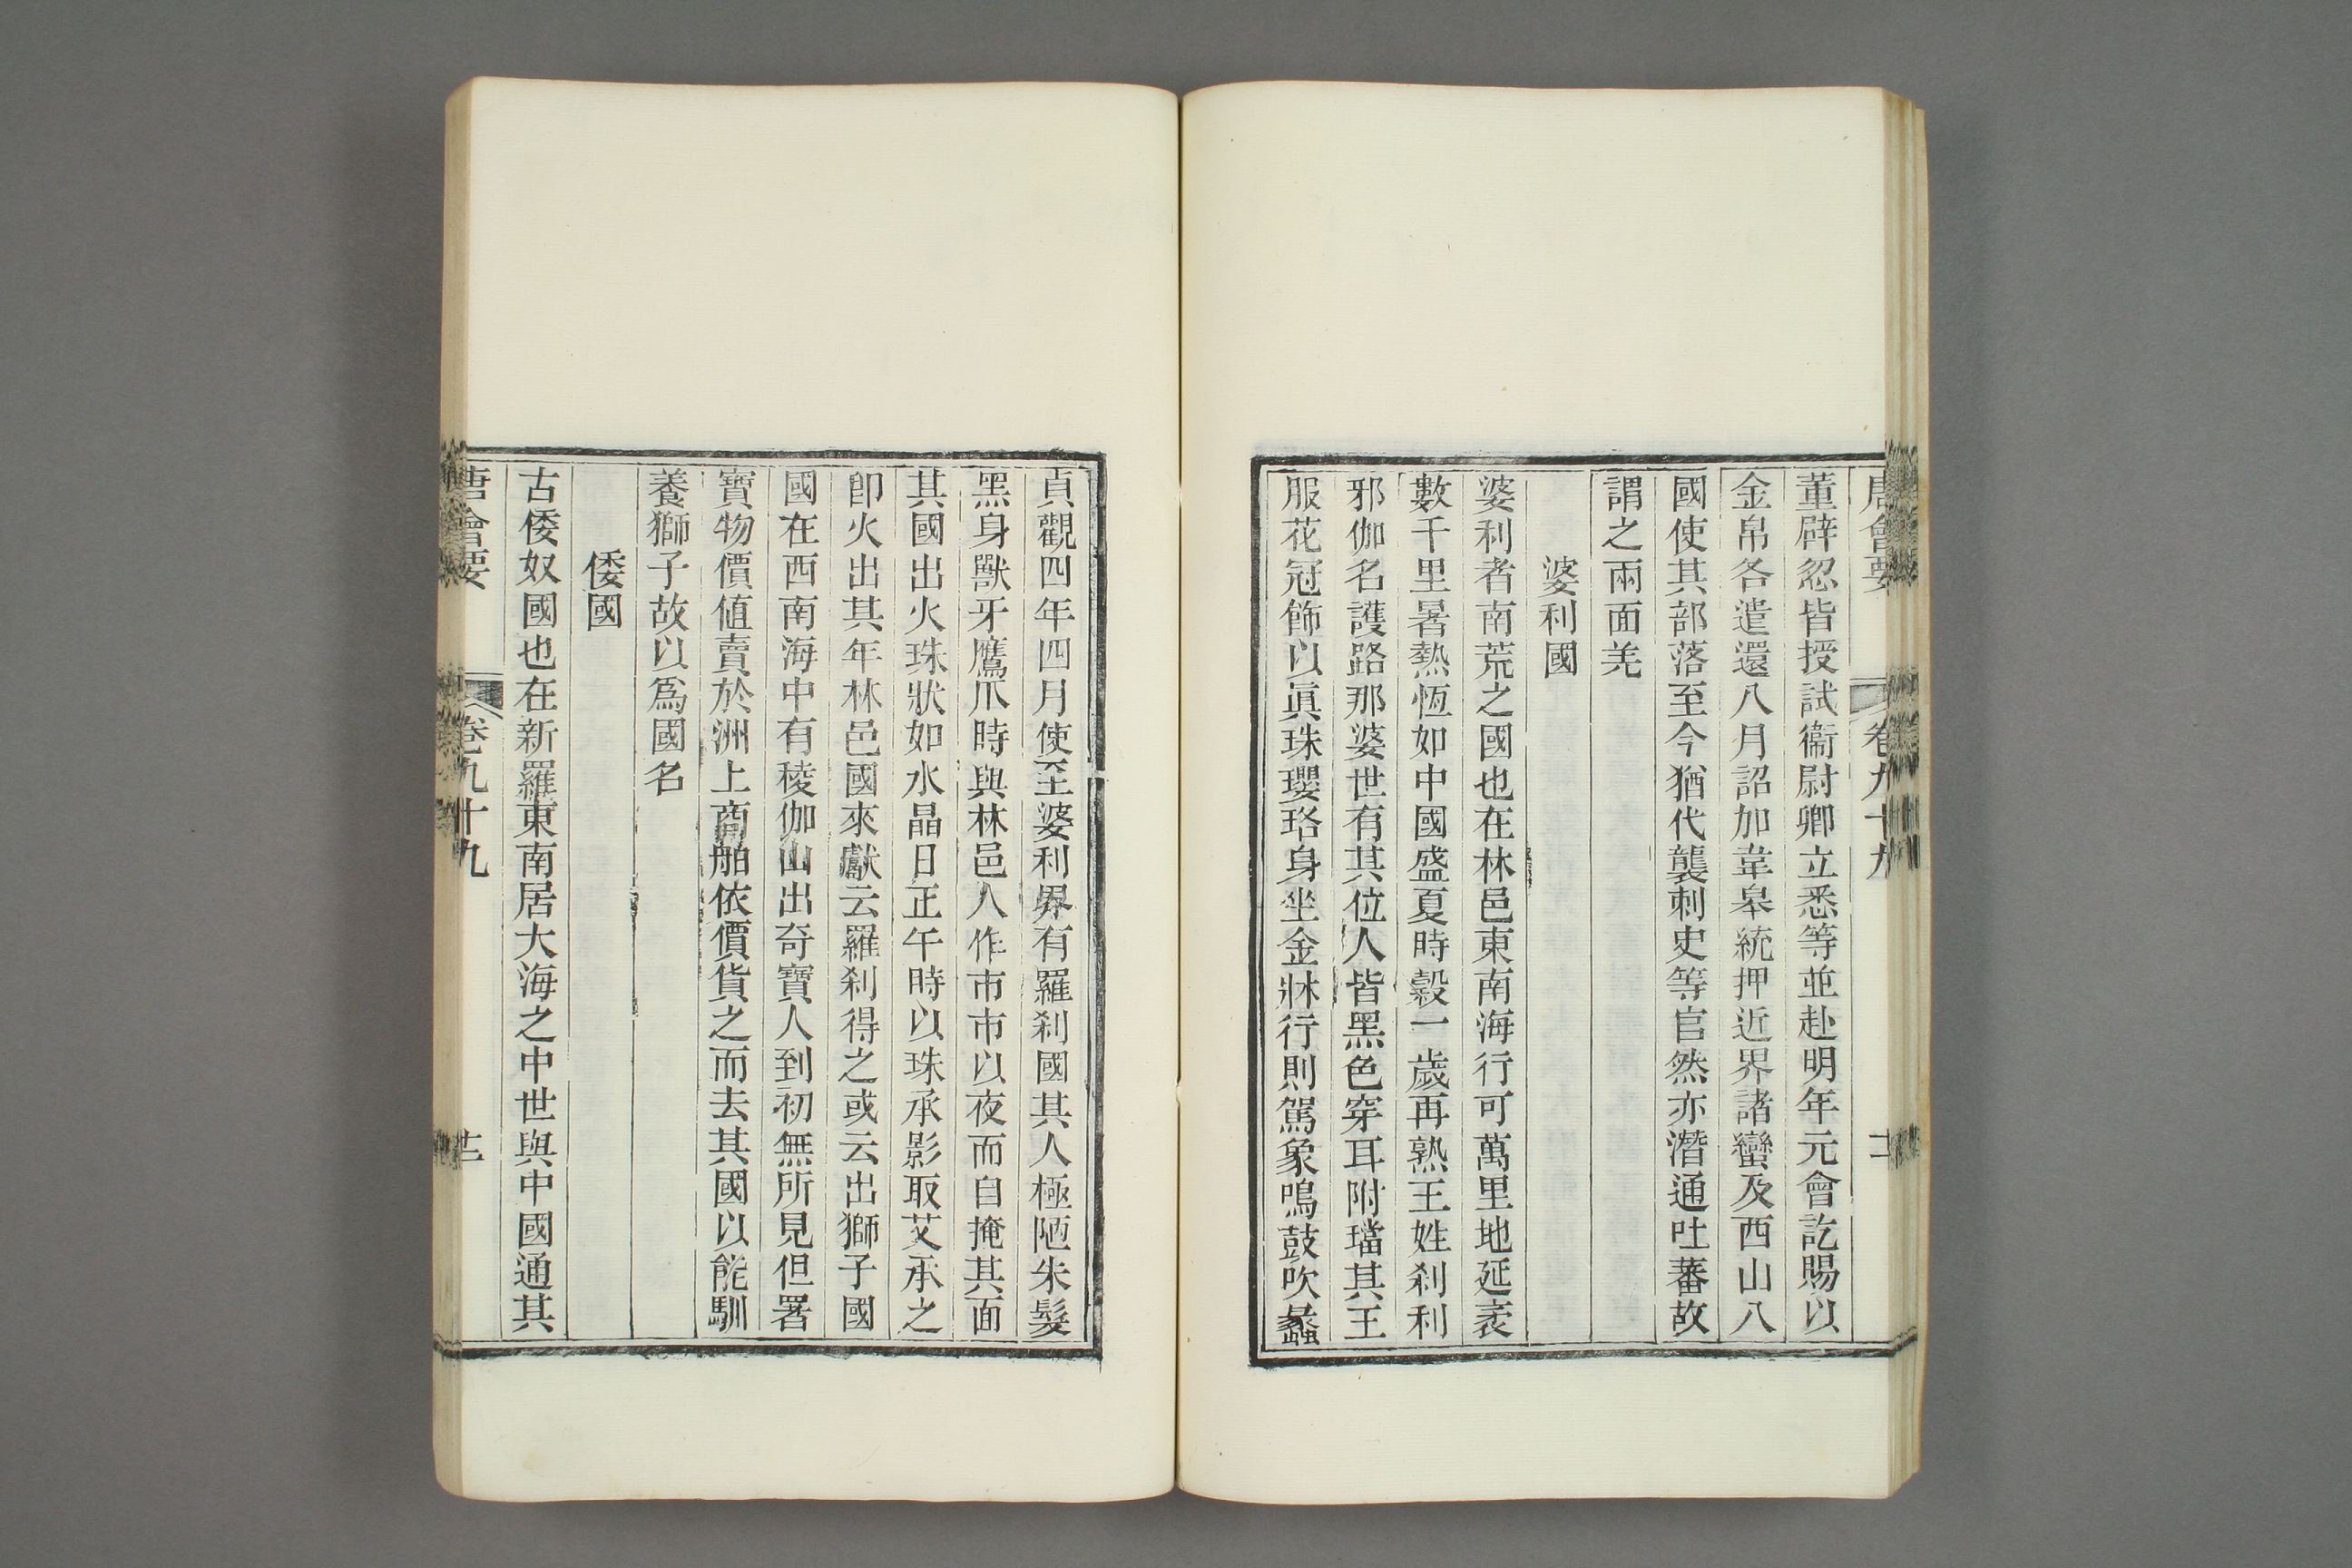 唐會要 卷九十九 十二
董辟忽皆授試衞尉卿立悉等並赴明年元會訖賜以
金帛各遣還八月詔加韋皋統押近界諸蠻及西山八
國使其部落至今猶代襲刺史等官然亦潛通吐蕃故
謂之兩面羌
婆利國
婆利者南荒之國也在林邑東南海行可萬里地延袤
數千里暑熱恆如中國盛夏時穀一歲再熟王姓刹利
邪伽名護路那婆世有其位人皆黑色穿耳附璫其王
服花冠飾以眞珠瓔珞身坐金牀行則駕象鳴鼓吹蠡
貞觀四年四月使至婆利界有羅刹國其人極陋朱髮
黑身獸牙鷹爪時與林邑人作市市以夜而自掩其面
其國出火珠狀如水晶日正午時以珠承影取艾承之
卽火出其年林邑國來獻云羅刹得之或云出獅子國
國在西南海中有稜伽山出奇寶人到初無所見但署
寶物價値賣於洲上商舶依價貨之而去其國以能馴
養獅子故以爲國名
倭國
古倭奴國也在新羅東南居大海之中世與中國通其
唐會要 卷九十九